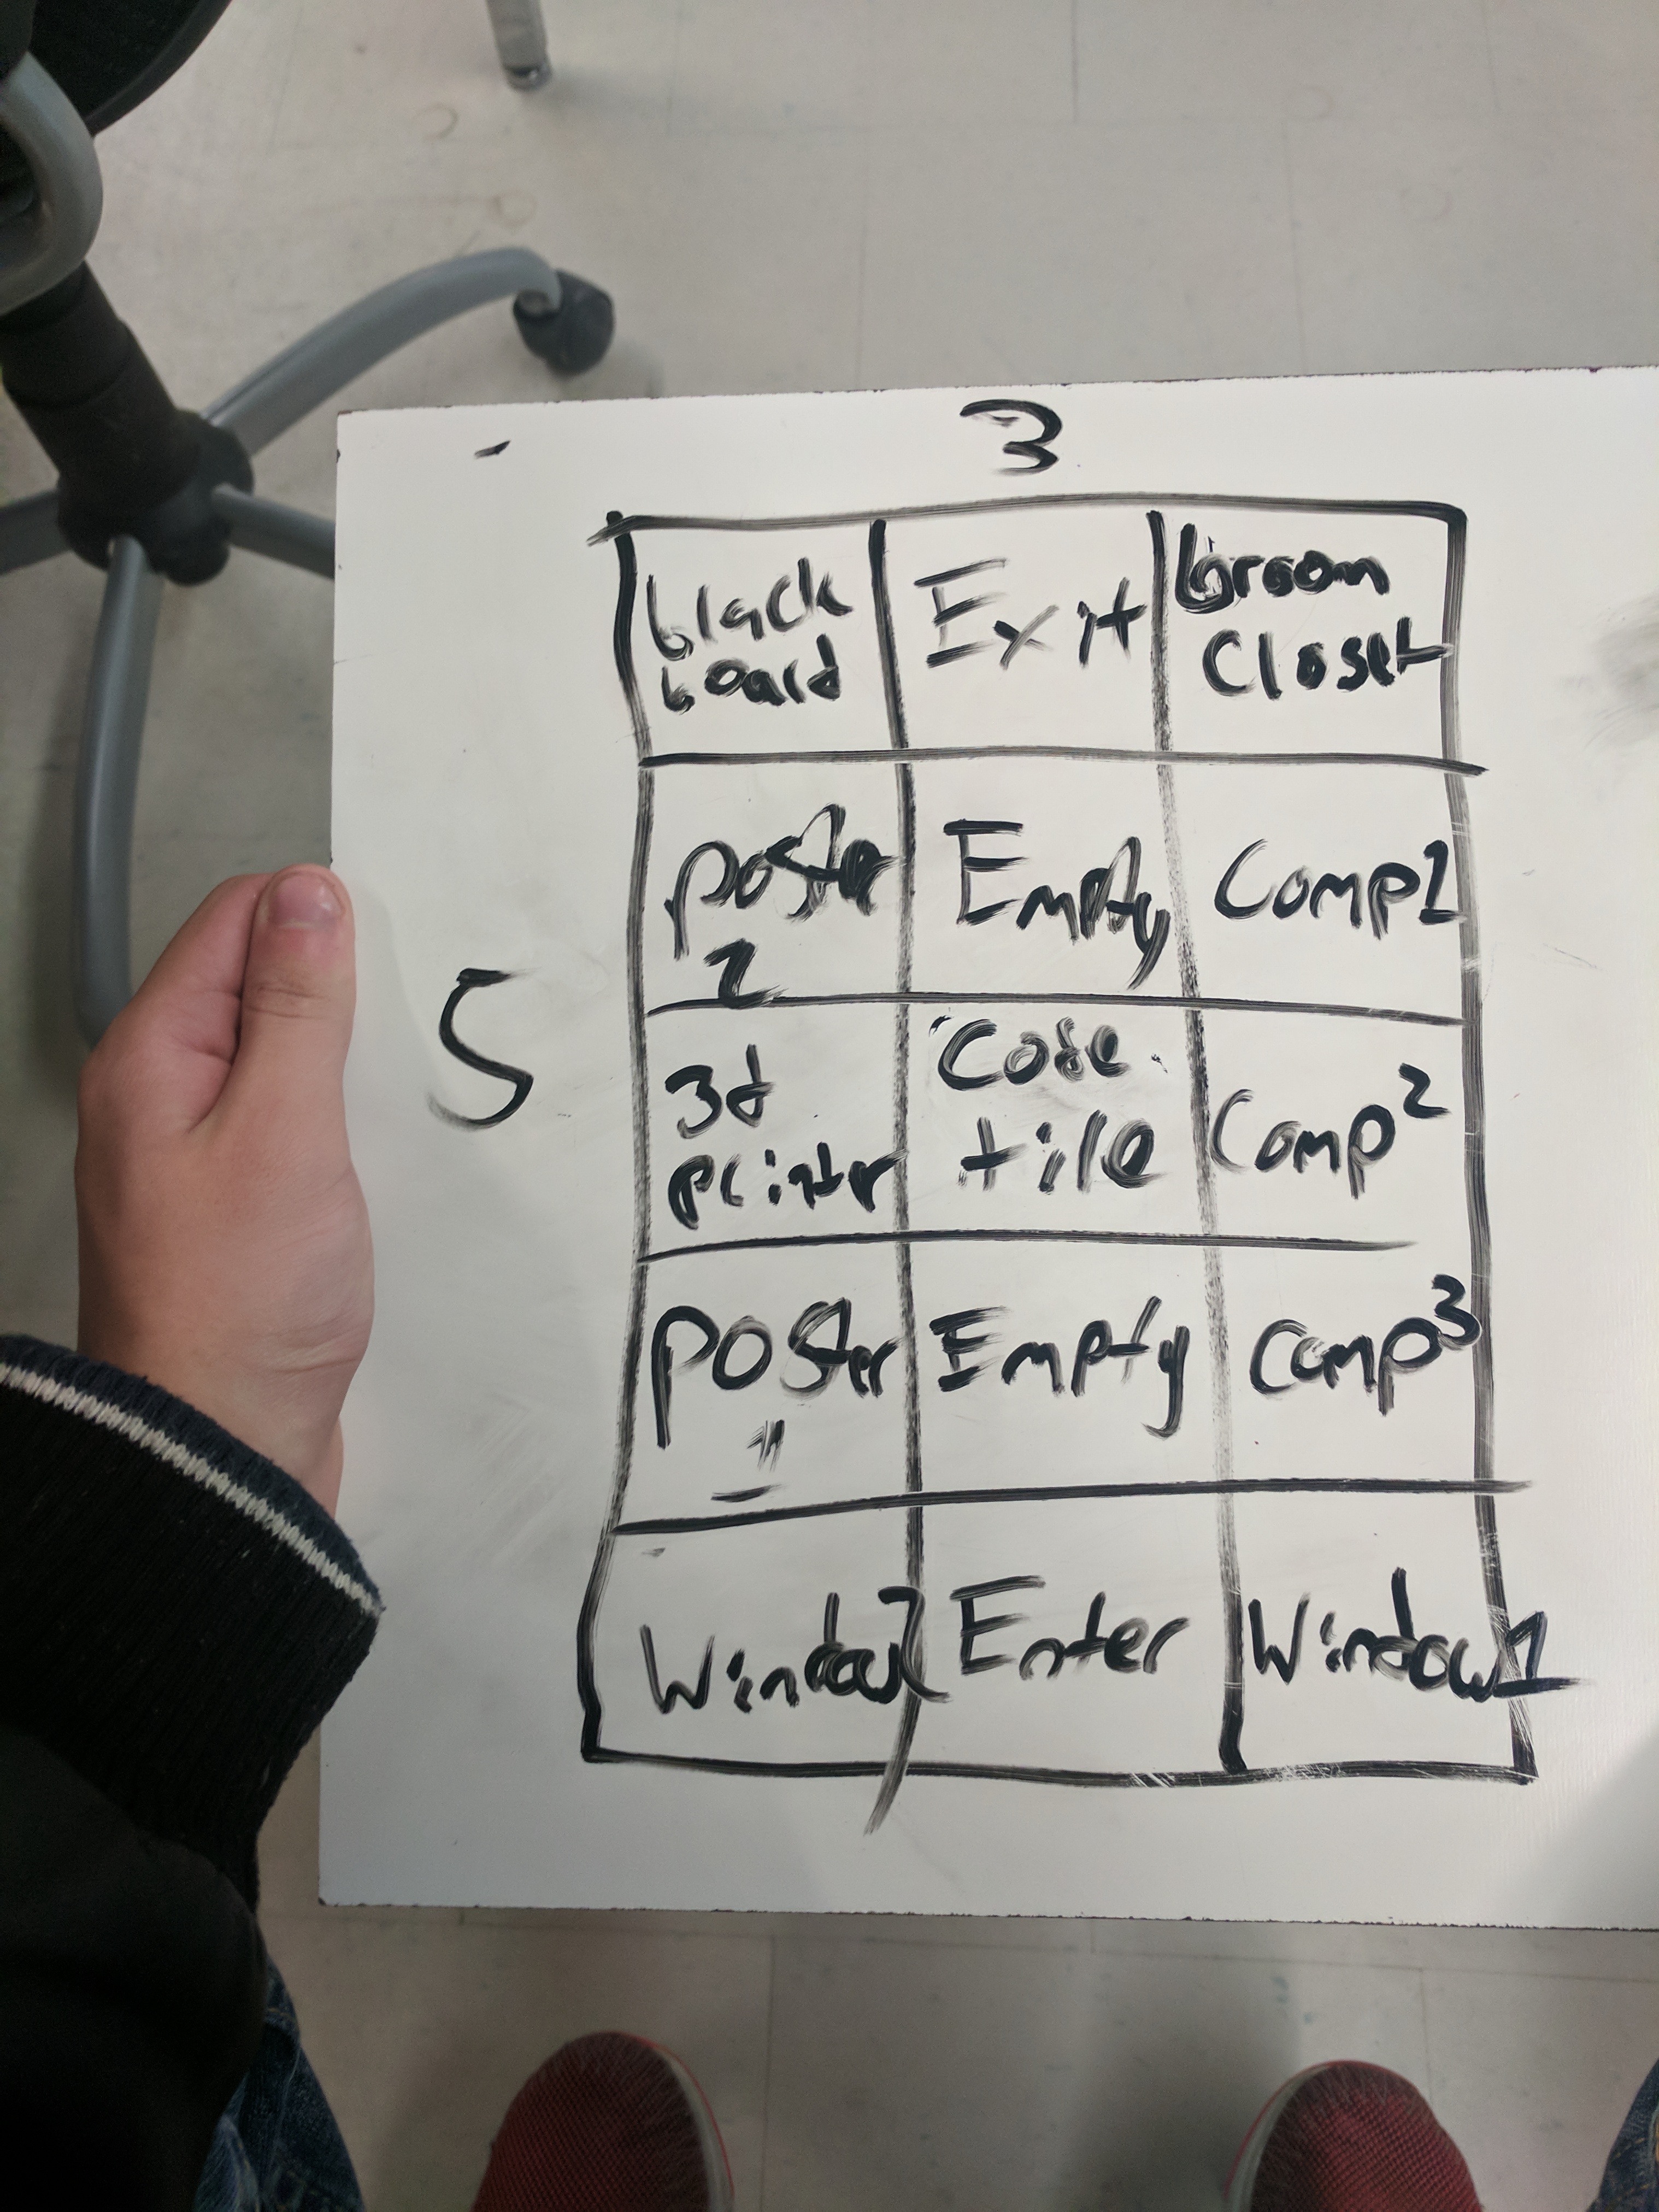 3
black
board
Exit
broom
Closet
poster
2
Empty
Comp1
5
3d
printer
Code
tile
Comp2
poster
1
Empty
Comp3
Window2
Enter
Window1